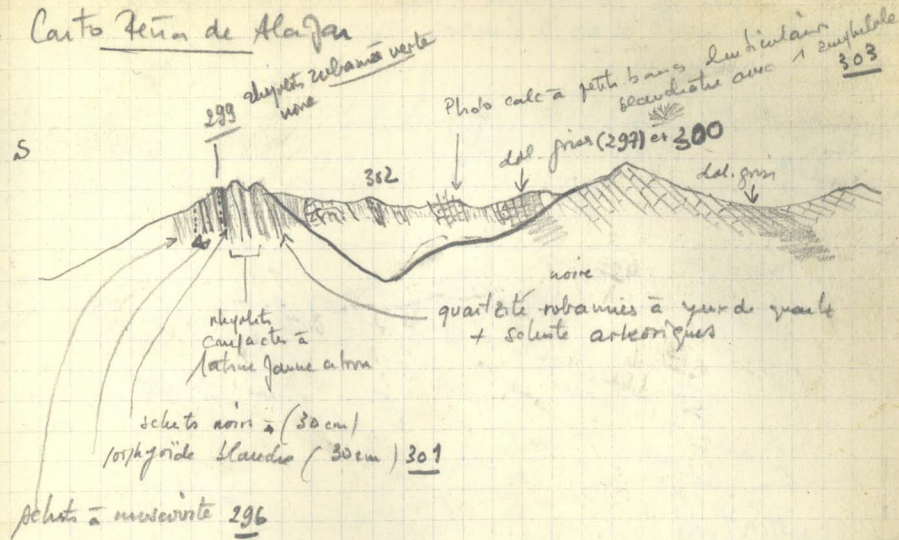 Carto Peña de Alajar
299 rhyolits rubannée verte
noire
Photo calc à petits bancs lenticulaires
blanchâtre avec 1 amphibole
303
S
302
dol. grise (297) et 300
dol. grise
noire
quartzite rubannées à yeux de quartz
+ schiste arkosiques
rhyolits
compactes à
patine jaune citron
schists noirs (30 cm)
porphyroïde blanche (30 cm) 301
schists à muscovite 296